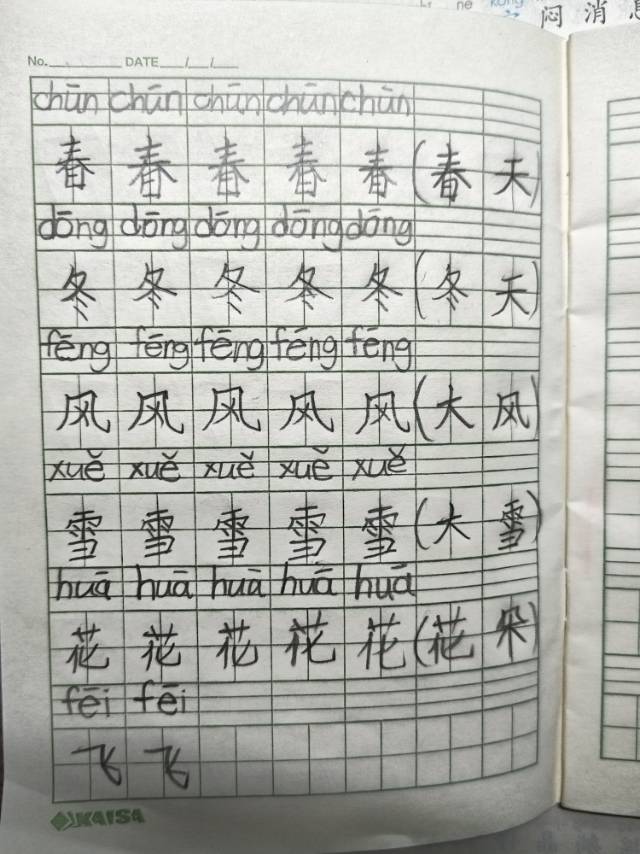 闷 消
No. DATE / /
chūn chūn chūn chūn chūn
春 春 春 春 春 (春 天)
dōng dōng dōng dōng dōng
冬 冬 冬 冬 冬 (冬 天)
fēng fēng fēng fēng fēng
风 风 风 风 风 (大 风)
xuě xuě xuě xuě xuě
雪 雪 雪 雪 雪 (大 雪)
huā huā huā huā huā
花 花 花 花 花 (花 朵)
fēi fēi
飞 飞
KAISA